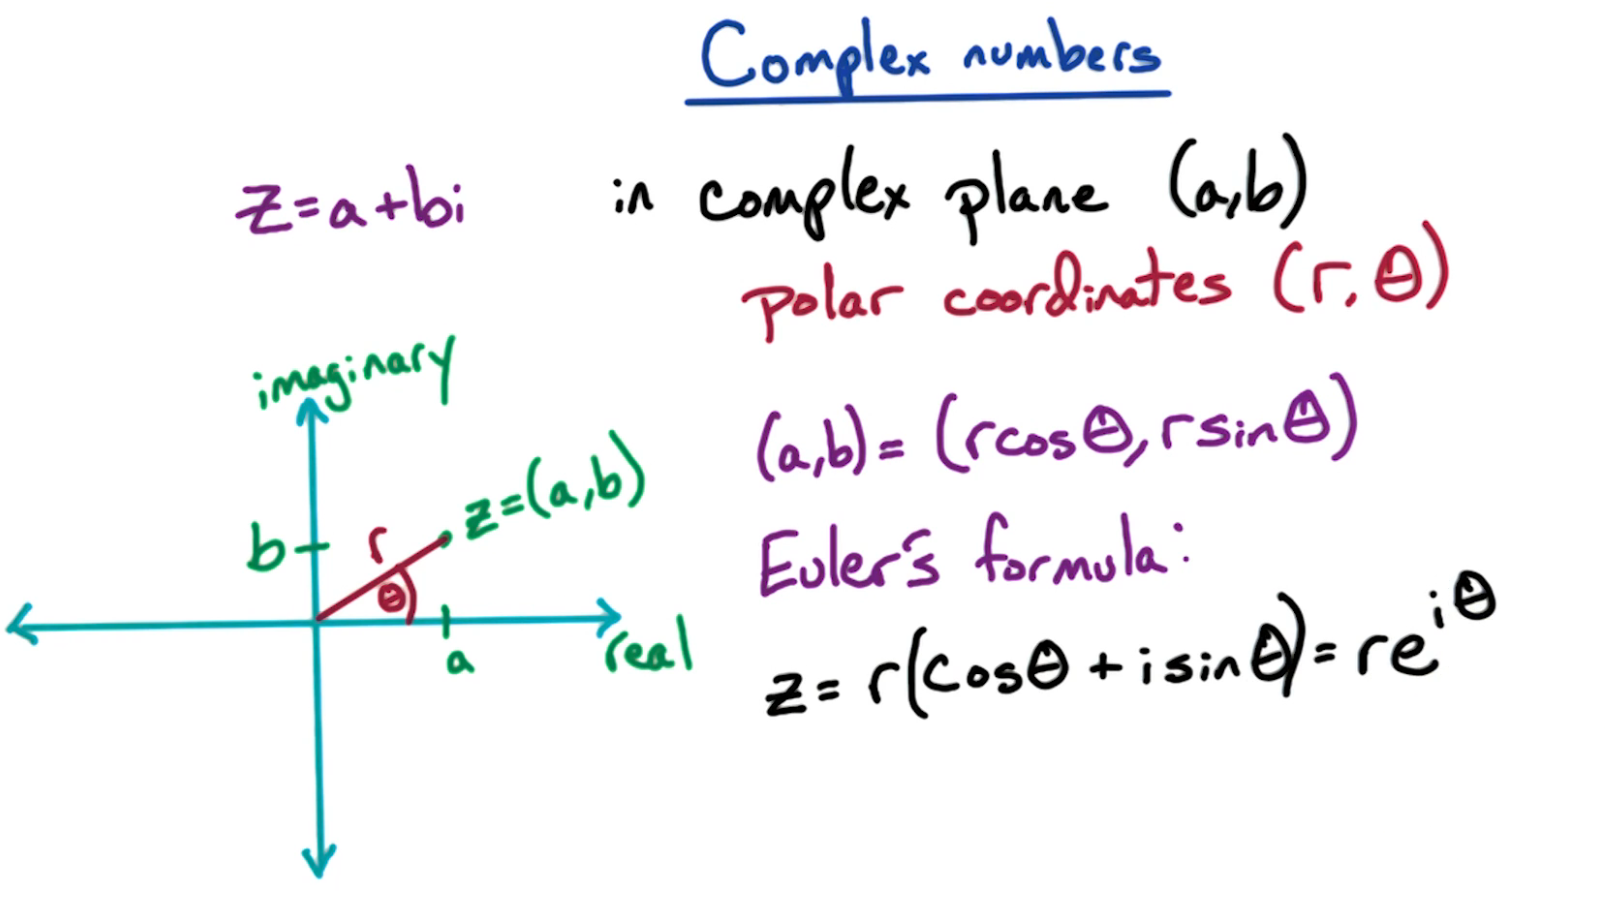 Complex numbers
z = a + bi in complex plane (a,b)
polar coordinates (r, θ)
imaginary
(a,b) = (rcosθ, rsinθ)
z=(a,b)
b
r
θ
Euler's formula:
a
real
z = r(cosθ + i sinθ) = re^{iθ}